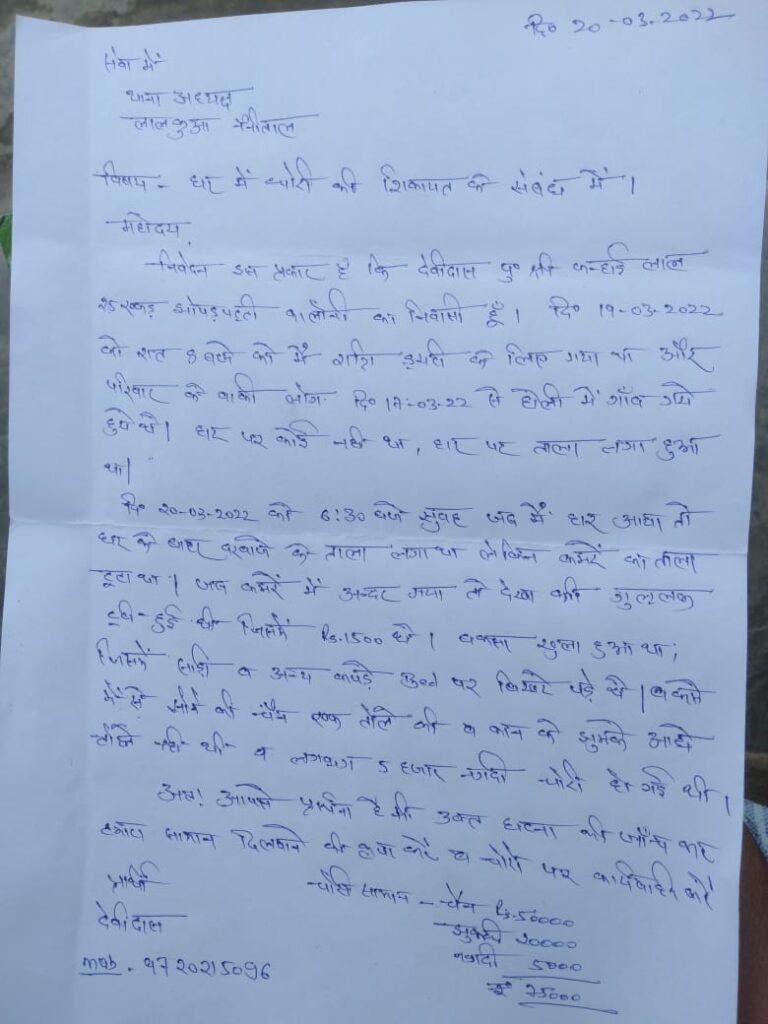 दि० 20-03-2022
सेवा में
थाना अध्यक्ष
लालकुआ नैनीताल
विषय - घर में चोरी की शिकायत के संबंध में।
महोदय,
निवेदन इस प्रकार है कि देवीदास पु० श्री कन्हई लाल
25 एकड़ झोपड़पट्टी कालोनी का निवासी हूँ। दि० 19-03-2022
को रात 8 बजे को मैं रात्रि ड्यूटी के लिए गया था और
परिवार के बाकी लोग दि० 17-03-22 से होली में गाँव गये
हुये थे। घर पर कोई नहीं था, घर पर ताला लगा हुआ
था।
दि० 20-03-2022 को 6:30 बजे सुबह जब मैं घर आया तो
घर के बाहर दरवाजे के ताला लगा था लेकिन कमरें का ताला
टूटा था। जब कमरें में अन्दर गया तो देखा की गुल्लक
टूटी-हुई थी जिसमें Rs.1500 थे। बक्सा खुला हुआ था,
जिसमें साड़ी व अन्य कपड़े पर बिखरे पड़े थे। बक्से
में से सोने की चैन एक तोले की व कान के झुमके आधे
तोले की थी व लगभग 5 हजार नगदी चोरी हो गई थी।
अतः आपसे प्रार्थना है की उक्त घटना की जाँच कर
हमारा सामान दिलवाने की कृपा करें व चोरों पर कार्यवाही करें
प्रार्थी चोरी सामान - चैन Rs.50000
झुमके 20000
देवीदास नगदी 5000
mob. 9720215096 75000